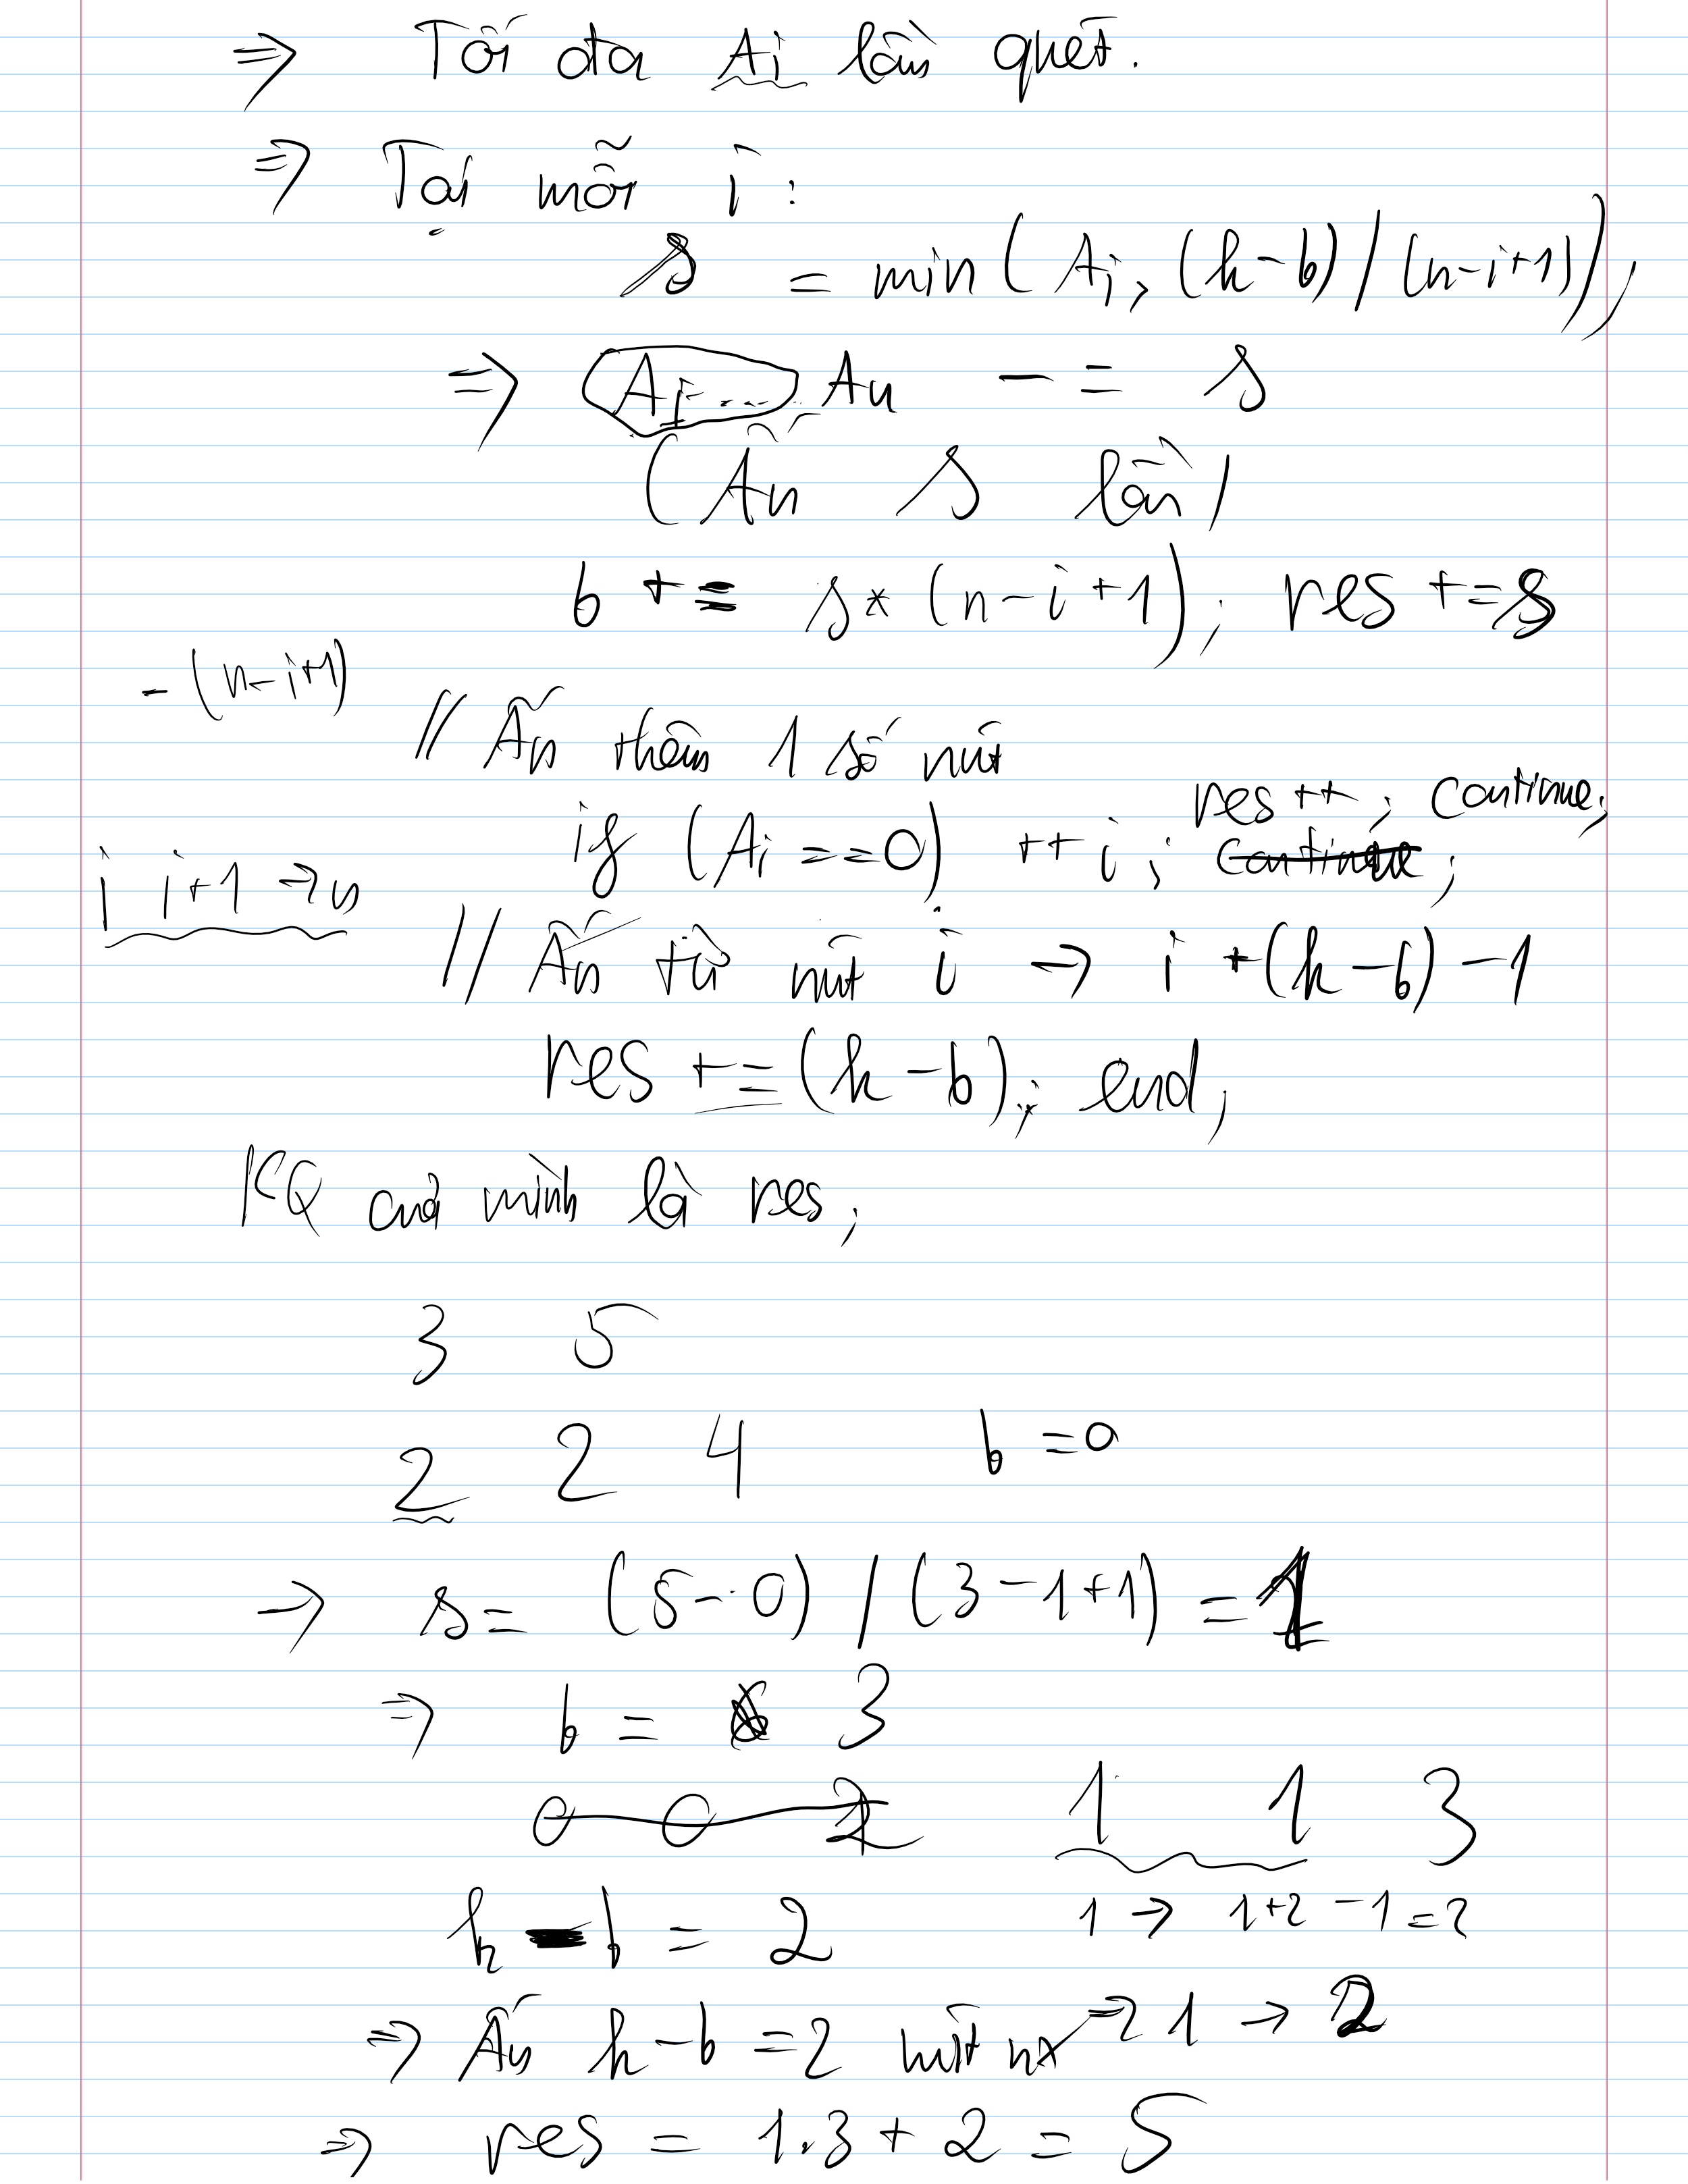 => Tối đa Ai lần quét.
=> Tại mỗi i:
s = min(Ai, (k-b)/(n-i+1));
=> Ai.... An -= s
(Ấn s lần)
b += s*(n-i+1); res += s
-(n-i+1)
// Ấn thêm 1 số nút
res++; continue;
if (Ai==0) ++i; continue;
i i+1 -> n
// Ấn từ nút i -> i+(k-b)-1
res += (k-b); end;
KQ của mình là res;
3 5
2 2 4 b=0
-> s= (5-0)/(3-1+1) = 1
=> b = 3
0 0 2 1 1 3
k - b = 2 1 -> 1+2-1=2
=> Ấn k-b=2 nút => 1 -> 2
=> res = 1.3+2 = 5